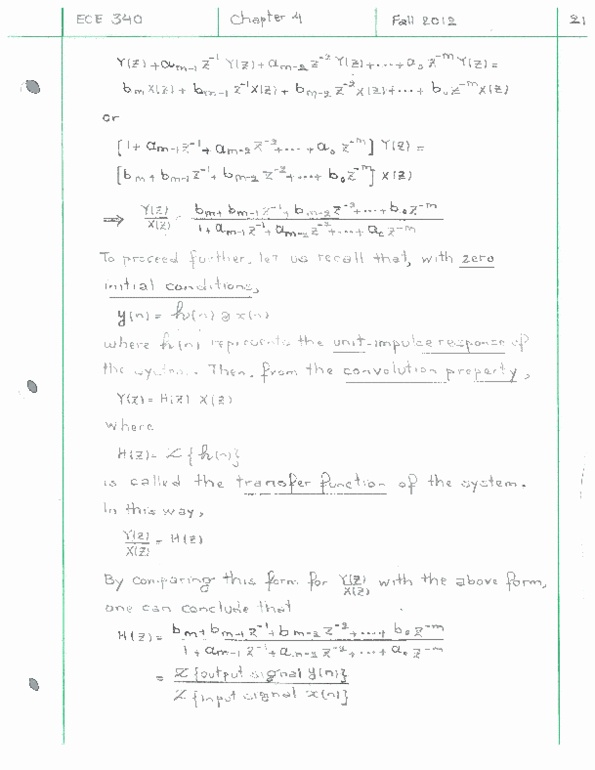 ECE 340 Chapter 4 Fall 2012 21
Y(z) + a_{m-1} z^{-1} Y(z) + a_{m-2} z^{-2} Y(z) + ... + a_0 z^{-m} Y(z) =
b_m X(z) + b_{m-1} z^{-1} X(z) + b_{m-2} z^{-2} X(z) + ... + b_0 z^{-m} X(z)
or
[1 + a_{m-1} z^{-1} + a_{m-2} z^{-2} + ... + a_0 z^{-m}] Y(z) =
[b_m + b_{m-1} z^{-1} + b_{m-2} z^{-2} + ... + b_0 z^{-m}] X(z)
⇒ Y(z)/X(z) = (b_m + b_{m-1} z^{-1} + b_{m-2} z^{-2} + ... + b_0 z^{-m}) / (1 + a_{m-1} z^{-1} + a_{m-2} z^{-2} + ... + a_0 z^{-m})
To proceed further, let us recall that, with zero
initial conditions,
y(n) = h(n) ⊛ x(n)
where h(n) represents the unit-impulse response of
the system. Then, from the convolution property,
Y(z) = H(z) X(z)
where
H(z) = Z{h(n)}
is called the transfer function of the system.
In this way,
Y(z)/X(z) = H(z)
By comparing this form for Y(z)/X(z) with the above form,
one can conclude that
H(z) = (b_m + b_{m-1} z^{-1} + b_{m-2} z^{-2} + ... + b_0 z^{-m}) / (1 + a_{m-1} z^{-1} + a_{m-2} z^{-2} + ... + a_0 z^{-m})
= Z{output signal y(n)} / Z{input signal x(n)}